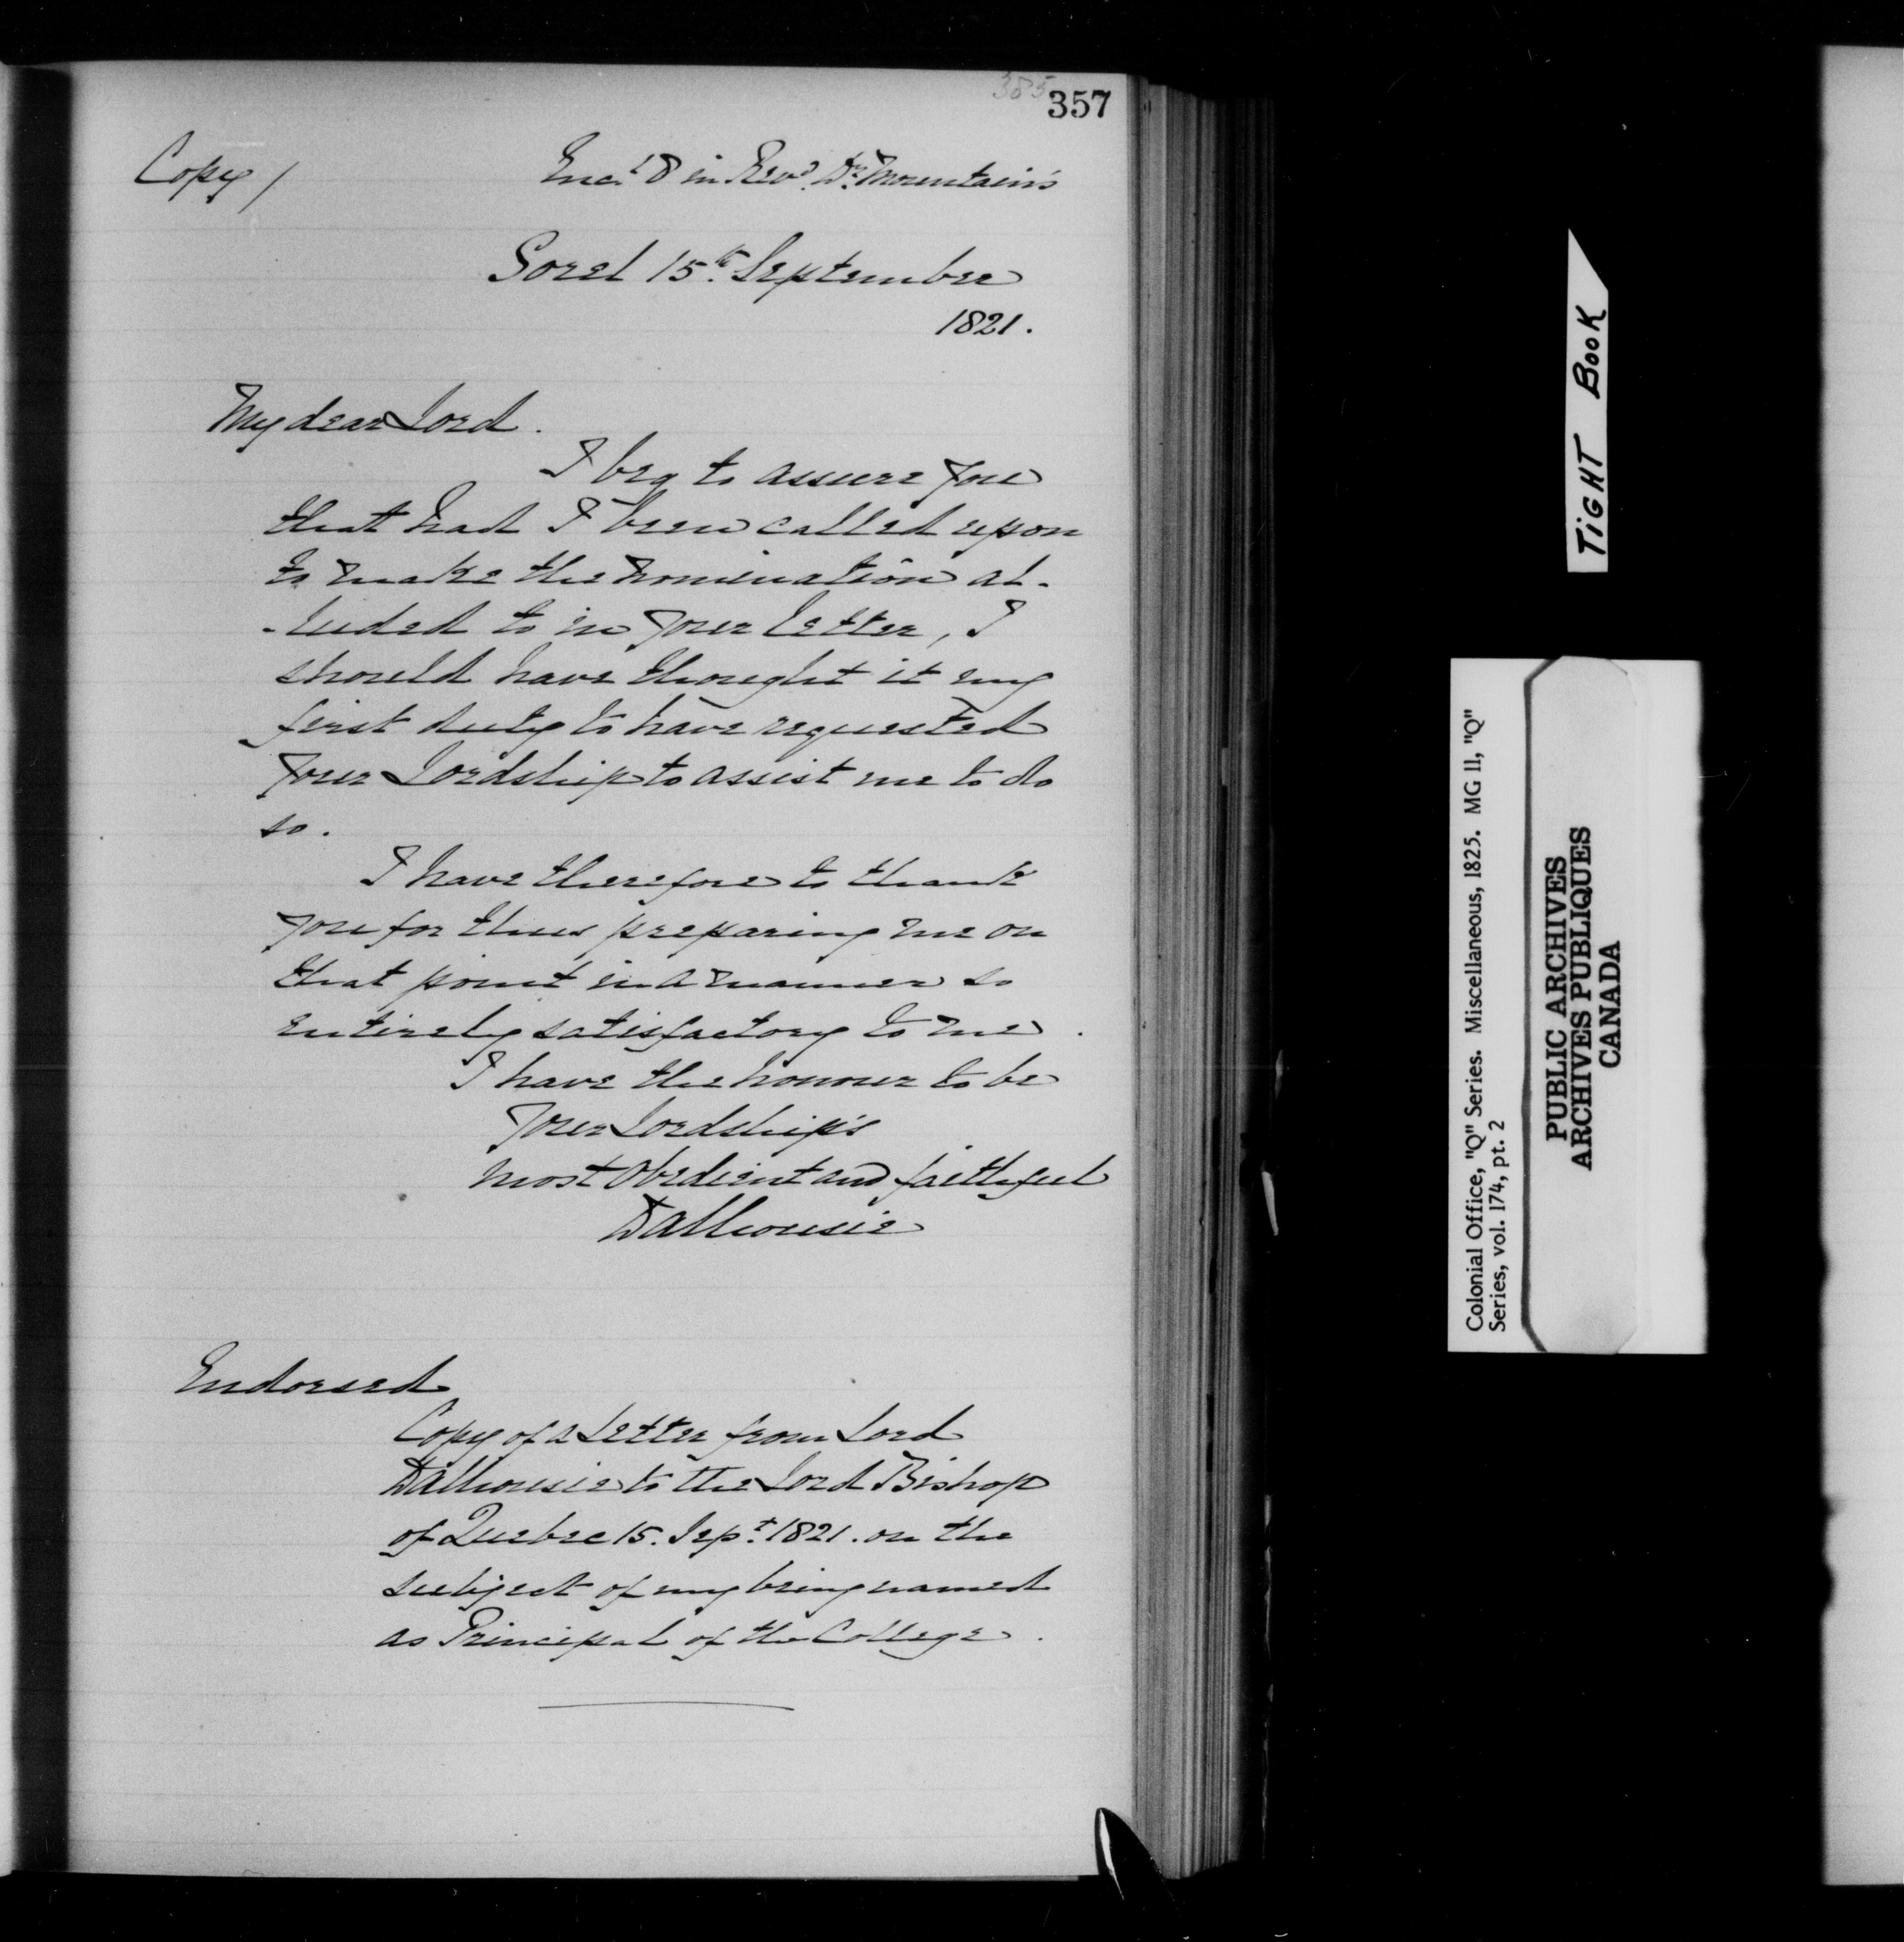 385
357
Copy /
Encl 8 in Revd. Dr. Mountain's
Sorel 15th. September
1821.
My dear Lord.
I beg to assure you
that had I been called upon
to make the nomination al-
-luded to in your letter, I
should have thought it my
first duty to have requested
your Lordship to assist me to do
so.
I have therefore to thank
you for thus preparing me on
that point in a manner so
entirely satisfactory to me.
I have the honour to be
Your Lordship's
most obedient and faithful
Dalhousie
Endorsed
Copy of a Letter from Lord
Dalhousie to the Lord Bishop
of Quebec 15. Sept. 1821. on the
subject of my being named
as Principal of the College.
TiGHT BooK
Colonial Office, "Q" Series. Miscellaneous, 1825. MG 11, "Q"
Series, vol. 174, pt. 2
PUBLIC ARCHIVES
ARCHIVES PUBLIQUES
CANADA